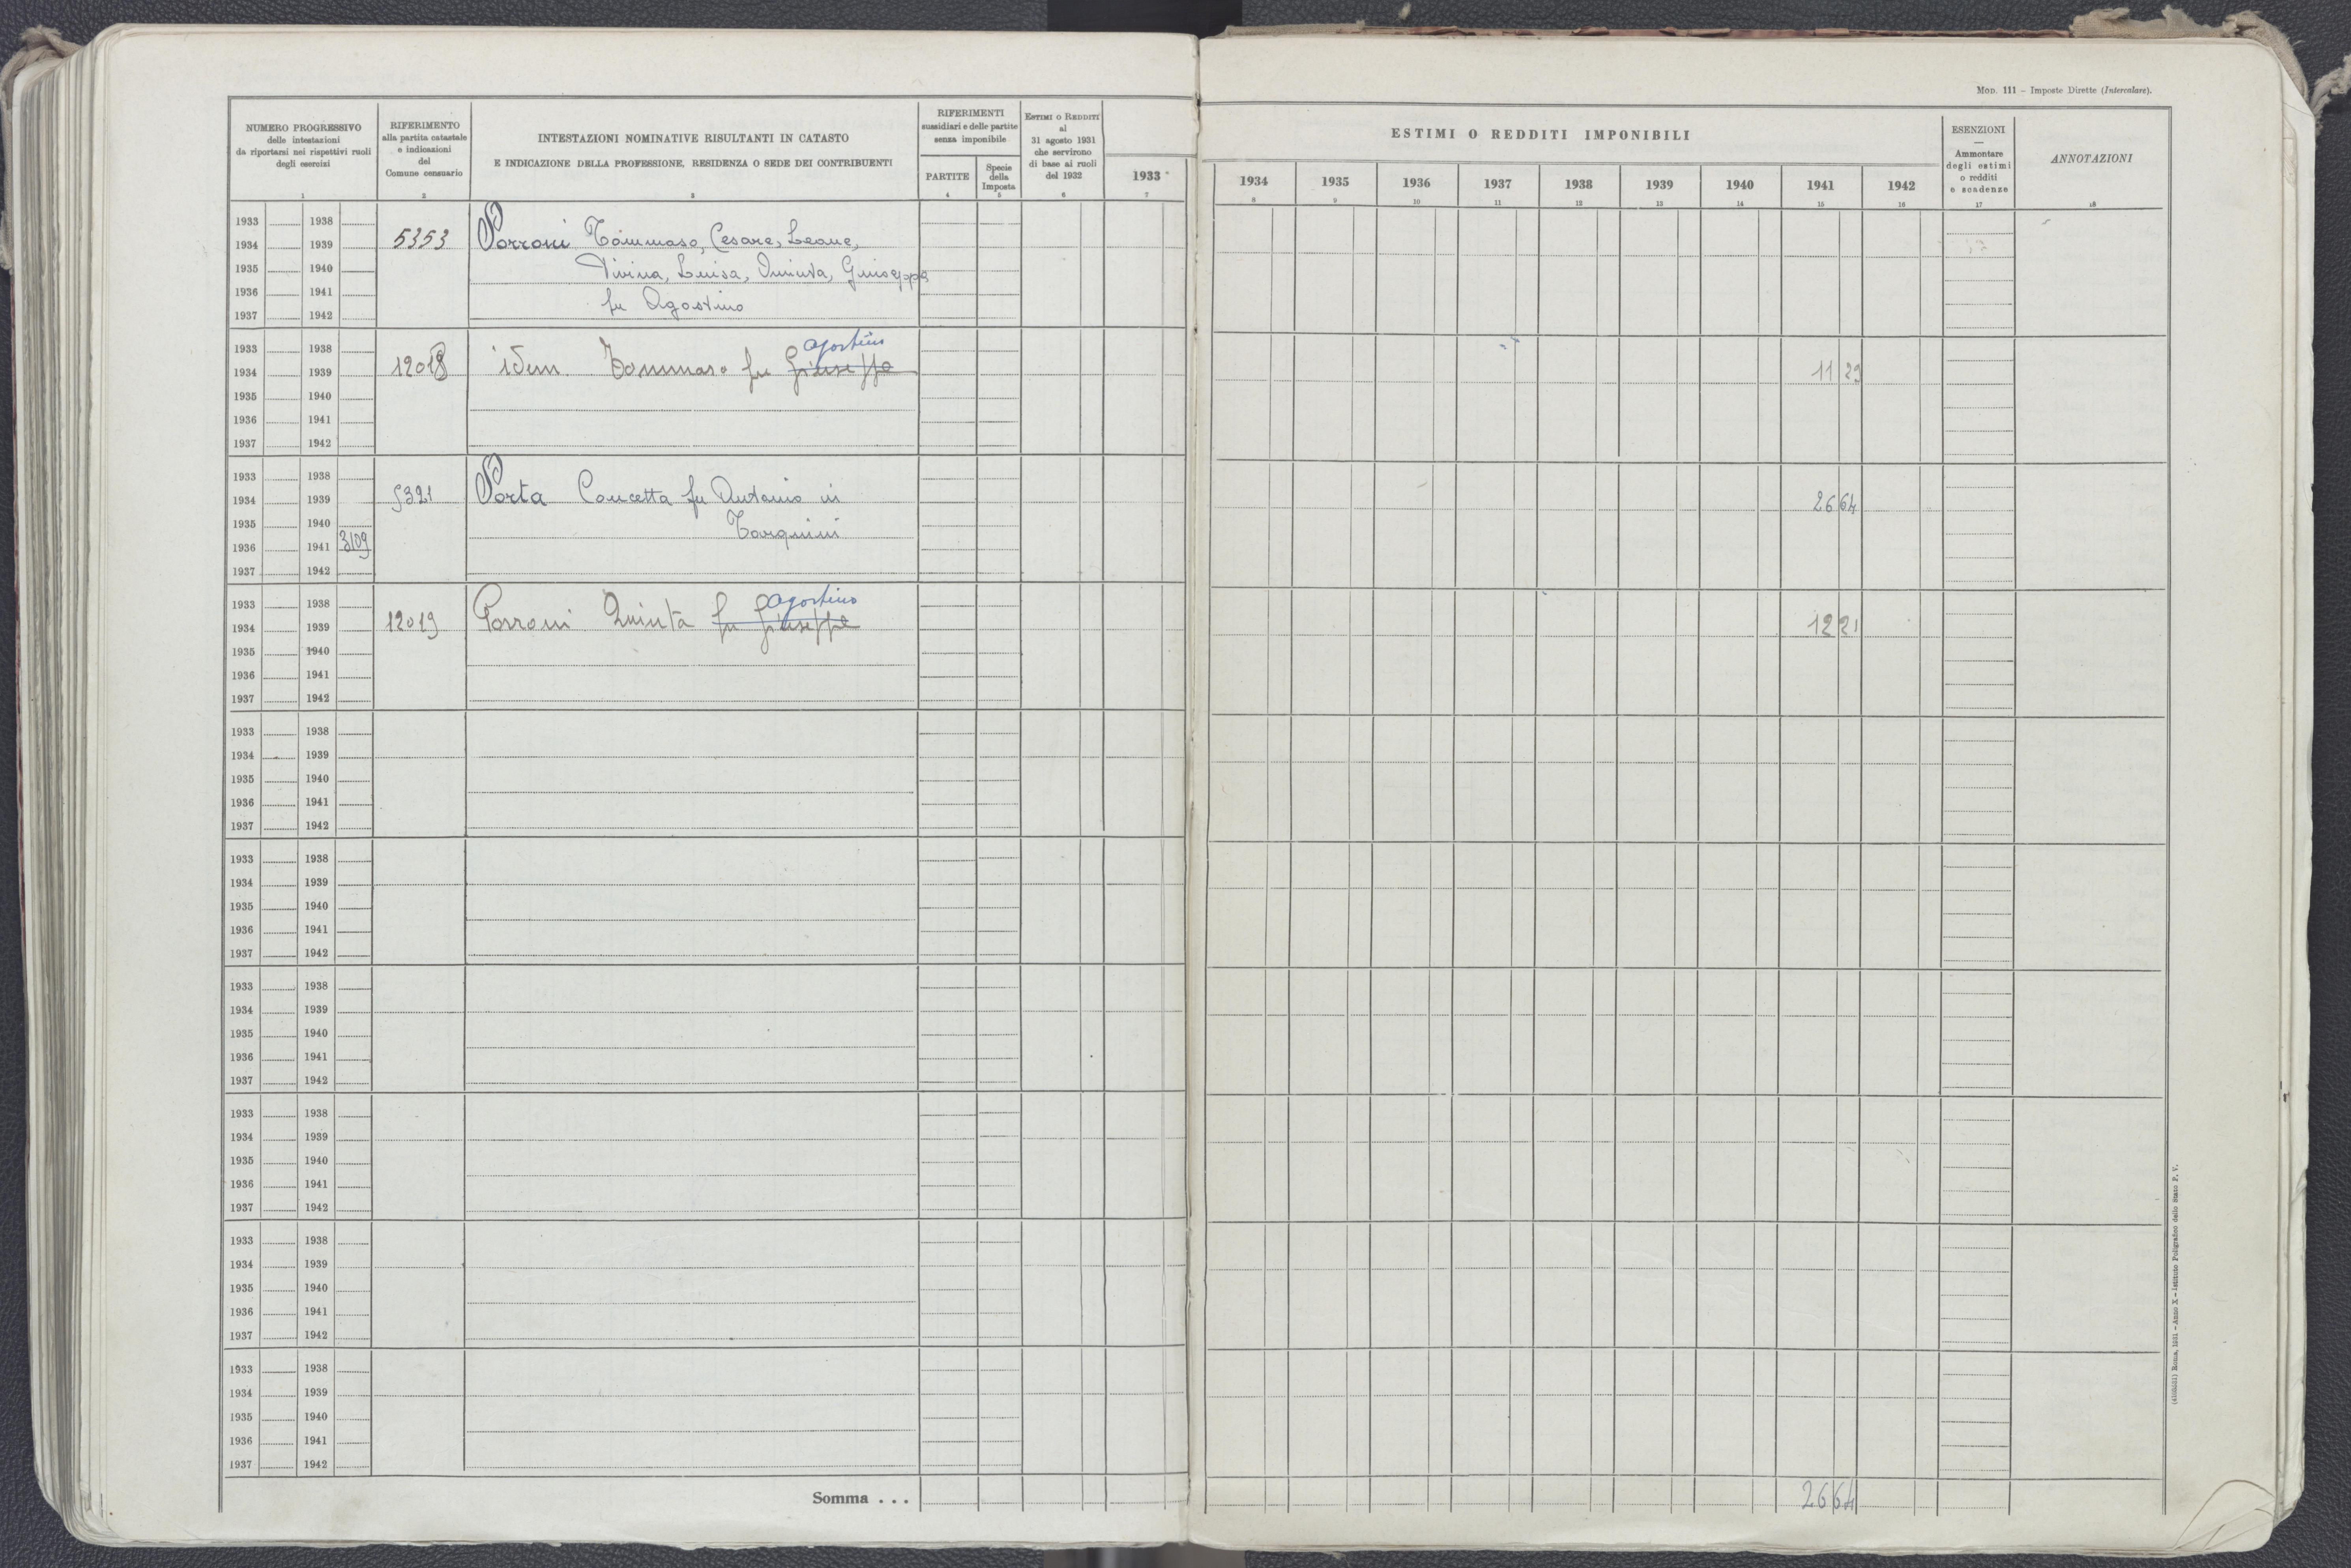 Mod. 111 – Imposte Dirette (Intercalare).
NUMERO PROGRESSIVO
delle intestazioni
da riportarsi nei rispettivi ruoli
degli esercizi
1
RIFERIMENTO
alla partita catastale
e indicazioni
del
Comune censuario
2
INTESTAZIONI NOMINATIVE RISULTANTI IN CATASTO
E INDICAZIONE DELLA PROFESSIONE, RESIDENZA O SEDE DEI CONTRIBUENTI
3
RIFERIMENTI
sussidiari e delle partite
senza imponibile
PARTITE
4
Specie
della
Imposta
5
Estimi o Redditi
al
31 agosto 1931
che servirono
di base ai ruoli
del 1932
6
1933
7
ESTIMI O REDDITI IMPONIBILI
1934 1935 1936 1937 1938 1939 1940 1941 1942
8 9 10 11 12 13 14 15 16
ESENZIONI
—
Ammontare
degli estimi
o redditi
e scadenze
17
ANNOTAZIONI
18
1933 1938
1934 1939 5353 Porroni Tommaso, Cesare, Leone,
1935 1940 Divina, Luisa, Quinta, Giuseppa
1936 1941 fu Agostino
1937 1942
1933 1938 agostino
1934 1939 12018 idem Tommaso fu Giuseppe 11 23
1935 1940
1936 1941
1937 1942
1933 1938
1934 1939 5321 Porta Concetta fu Antonio in 26 64
1935 1940 Tarquini
1936 1941 3109
1937 1942
1933 1938 agostino
1934 1939 12019 Porroni Quinta fu Giuseppe 12 21
1935 1940
1936 1941
1937 1942
1933 1938
1934 1939
1935 1940
1936 1941
1937 1942
1933 1938
1934 1939
1935 1940
1936 1941
1937 1942
1933 1938
1934 1939
1935 1940
1936 1941
1937 1942
1933 1938
1934 1939
1935 1940
1936 1941
1937 1942
1933 1938
1934 1939
1935 1940
1936 1941
1937 1942
1933 1938
1934 1939
1935 1940
1936 1941
1937 1942
Somma . . . 26 64
Roma, 1931 – Anno X – Istituto Poligrafico dello Stato P. V.